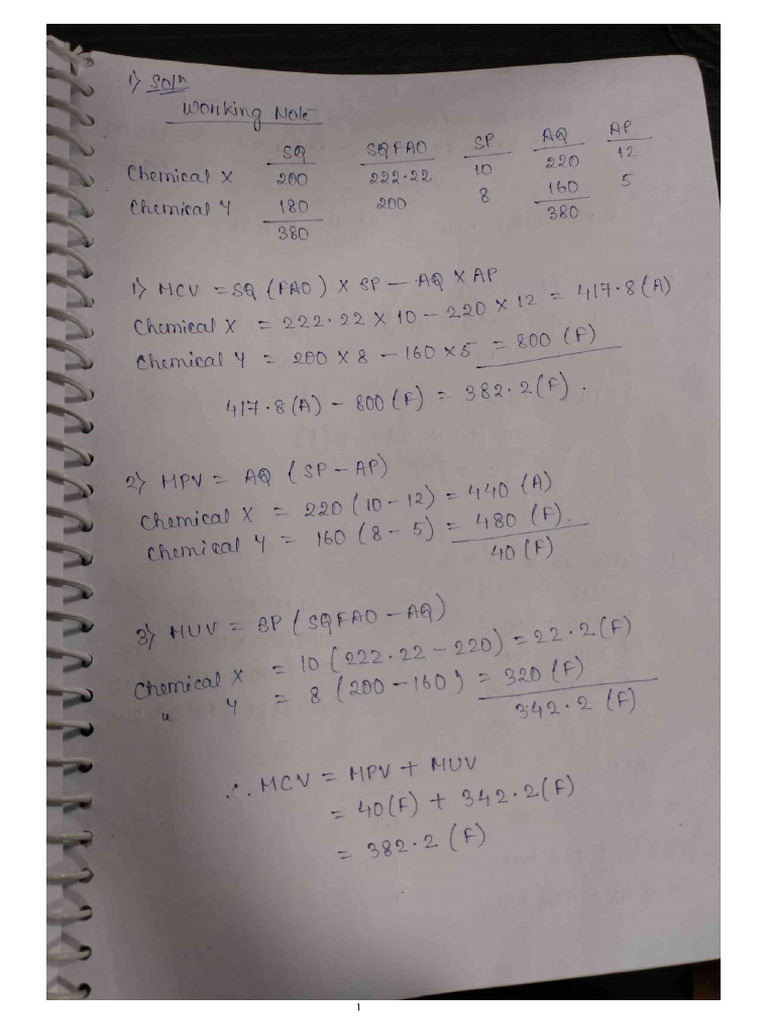 1) Solⁿ
Working Note
SQ SQFAO SP AQ AP
Chemical X 200 222.22 10 220 12
Chemical Y 180 200 8 160 5
380 380
1) MCV = SQ (FAO) × SP – AQ × AP
Chemical X = 222.22 × 10 – 220 × 12 = 417.8 (A)
Chemical Y = 200 × 8 – 160 × 5 = 800 (F)
417.8 (A) – 800 (F) = 382.2 (F).
2) MPV = AQ (SP – AP)
Chemical X = 220 (10 – 12) = 440 (A)
Chemical Y = 160 (8 – 5) = 480 (F).
40 (F)
3) MUV = SP (SQFAO – AQ)
Chemical X = 10 (222.22 – 220) = 22.2 (F)
" Y = 8 (200 – 160) = 320 (F)
342.2 (F)
∴ MCV = MPV + MUV
= 40 (F) + 342.2 (F)
= 382.2 (F)
1